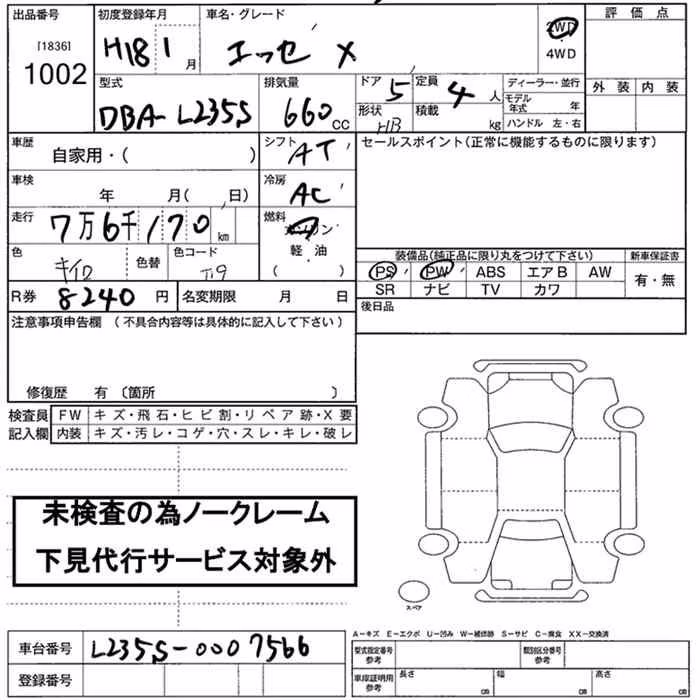 出品番号 初度登録年月 車名・グレード 評価点
[1836] 1002 H18 1月 エッセ X 2WD 4WD 外装 内装
型式 DBA-L235S 排気量 660 CC ドア 5 形状 HB 定員 4人 積載 kg ディーラー・並行
モデル年式 年
ハンドル 左・右
車歴 自家用・( ) シフト AT セールスポイント(正常に機能するものに限ります)
車検 年 月( 日) 冷房 AC
走行 7万6千170km 燃料 ガソリン 軽・油 ( )
色 キイロ 色替 色コード
装備品(純正品に限り丸をつけて下さい) 新車保証書
PS PW ABS エアB AW 有・無
SR ナビ TV カワ
R券 8240円 名変期限 月 日 後日品
注意事項申告欄 (不具合内容等は具体的に記入して下さい)
修復歴 有 〔箇所 〕
検査員 FW キズ・飛石・ヒビ割・リペア跡・X要
記入欄 内装 キズ・汚レ・コゲ・穴・スレ・キレ・破レ
未検査の為ノークレーム
下見代行サービス対象外
スペア
A-キズ E-エクボ U-凹み W-補修跡 S-サビ C-腐食 XX-交換済
車台番号 L235S-0007566 型式指定番号 参考 類別区分番号 参考
登録番号 車庫証明用 参考 長さ cm 幅 cm 高さ cm